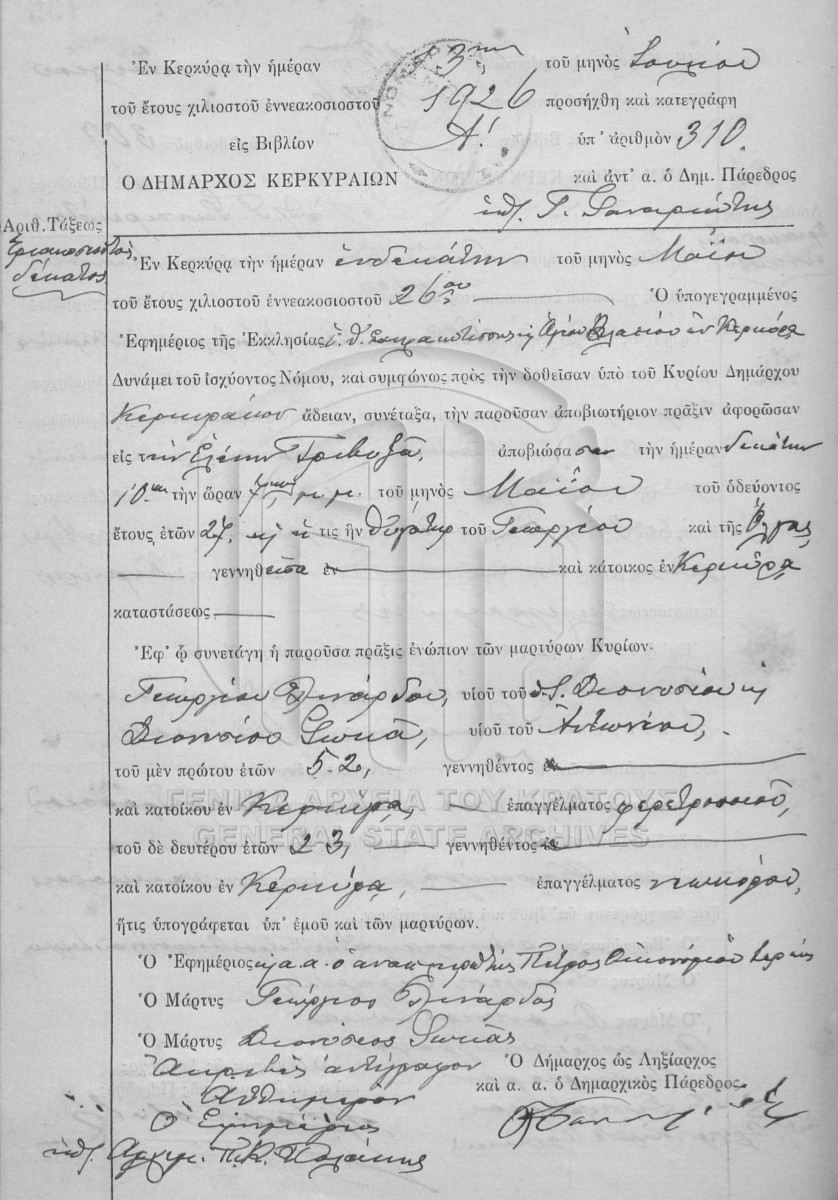 Ἐν Κερκύρᾳ τὴν ἡμέραν 3ην τοῦ μηνὸς Ἰουνίου
τοῦ ἔτους χιλιοστοῦ ἐννεακοσιοστοῦ 1926 προσήχθη καὶ κατεγράφη
εἰς Βιβλίον Α! ὑπ' ἀριθμὸν 310.
Ο ΔΗΜΑΡΧΟΣ ΚΕΡΚΥΡΑΙΩΝ καὶ ἀντ' α. ὁ Δημ. Πάρεδρος
Γ.
Ἀριθ. Τάξεως
Τριακοσιοστὸς
δέκατος
Ἐν Κερκύρᾳ τὴν ἡμέραν ἑνδεκάτην τοῦ μηνὸς Μαΐου
τοῦ ἔτους χιλιοστοῦ ἐννεακοσιοστοῦ 26ου Ὁ ὑπογεγραμμένος
Ἐφημέριος τῆς Ἐκκλησίας Ἁγίου Βλασίου ἐν Κερκύρᾳ
Δυνάμει τοῦ ἰσχύοντος Νόμου, καὶ συμφώνως πρὸς τὴν δοθεῖσαν ὑπὸ τοῦ Κυρίου Δημάρχου
Κερκυραίων ἄδειαν, συνέταξα, τὴν παροῦσαν ἀποβιωτήριον πρᾶξιν ἀφορῶσαν
εἰς τὴν Ἑλένην Γριβυζᾶ, ἀποβιώσασαν τὴν ἡμέραν δεκάτην
10ην τὴν ὥραν 7 μ.μ. τοῦ μηνὸς Μαΐου τοῦ ὁδεύοντος
ἔτους ἐτῶν 27, ἥτις ἦν θυγάτηρ τοῦ Γεωργίου καὶ τῆς Ὄλγας,
γεννηθεῖσα ἐν καὶ κάτοικος ἐν Κερκύρᾳ,
καταστάσεως
Ἐφ' ᾧ συνετάγη ἡ παροῦσα πρᾶξις ἐνώπιον τῶν μαρτύρων Κυρίων.
Γεωργίου Λινάρδου, υἱοῦ τοῦ Διονυσίου κ
Διονυσίου Σωκᾶ, υἱοῦ τοῦ Ἀντωνίου,
τοῦ μὲν πρώτου ἐτῶν 52, γεννηθέντος ἐν
καὶ κατοίκου ἐν Κερκύρᾳ, ἐπαγγέλματος φερετροποιοῦ,
ΓΕΝΙΚΑ ΑΡΧΕΙΑ ΤΟΥ ΚΡΑΤΟΥΣ
GENERAL STATE ARCHIVES
τοῦ δὲ δευτέρου ἐτῶν 23, γεννηθέντος ἐν
καὶ κατοίκου ἐν Κερκύρᾳ, ἐπαγγέλματος νεωκόρου,
ἥτις ὑπογράφεται ὑπ' ἐμοῦ καὶ τῶν μαρτύρων.
Ὁ Ἐφημέριος κ α.α. ὁ ἀναπληρωτὴς Πέτρος Οἰκονόμου Ἱερεὺς
Ὁ Μάρτυς Γεώργιος Λινάρδος
Ὁ Μάρτυς Διονύσιος Σωκᾶς
Ἀκριβὲς ἀντίγραφον Ὁ Δήμαρχος ὡς Ληξίαρχος
Αὐθημερὸν καὶ α. α. ὁ Δημαρχικὸς Πάρεδρος
Ὁ Ἐφημέριος
Ἀρχιμ. Π.Κ.